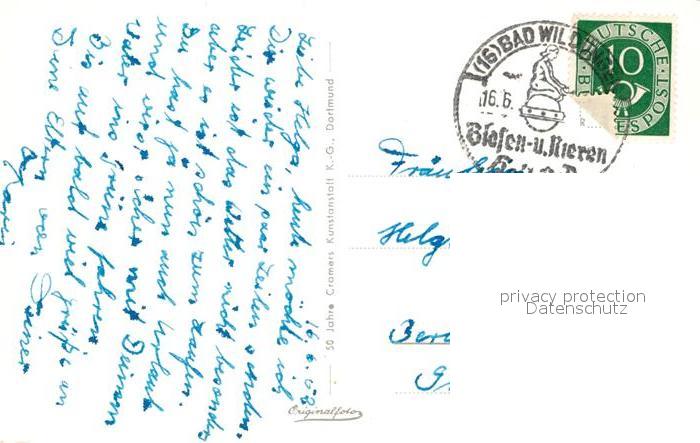 16.6.52
Liebe Helga, heut möchte ich
Dir wieder ein paar Zeilen senden.
Leider ist das Wetter nicht besonders
aber es ist schön zum Laufen.
Du hast ja nun auch Urlaub
und wirst sicher mit Deinem
Vater ins Grüne fahren.
Bis auf bald viel Grüße an
Deine Eltern von Deiner
Karin
50 Jahre Cramers Kunstanstalt K.-G., Dortmund
Originalfoto
(16) BAD WILDUNGEN
16.6.
Blasen-u.Nieren
DEUTSCHE
10
POST
Fräu
Helg
Ber
privacy protection
Datenschutz